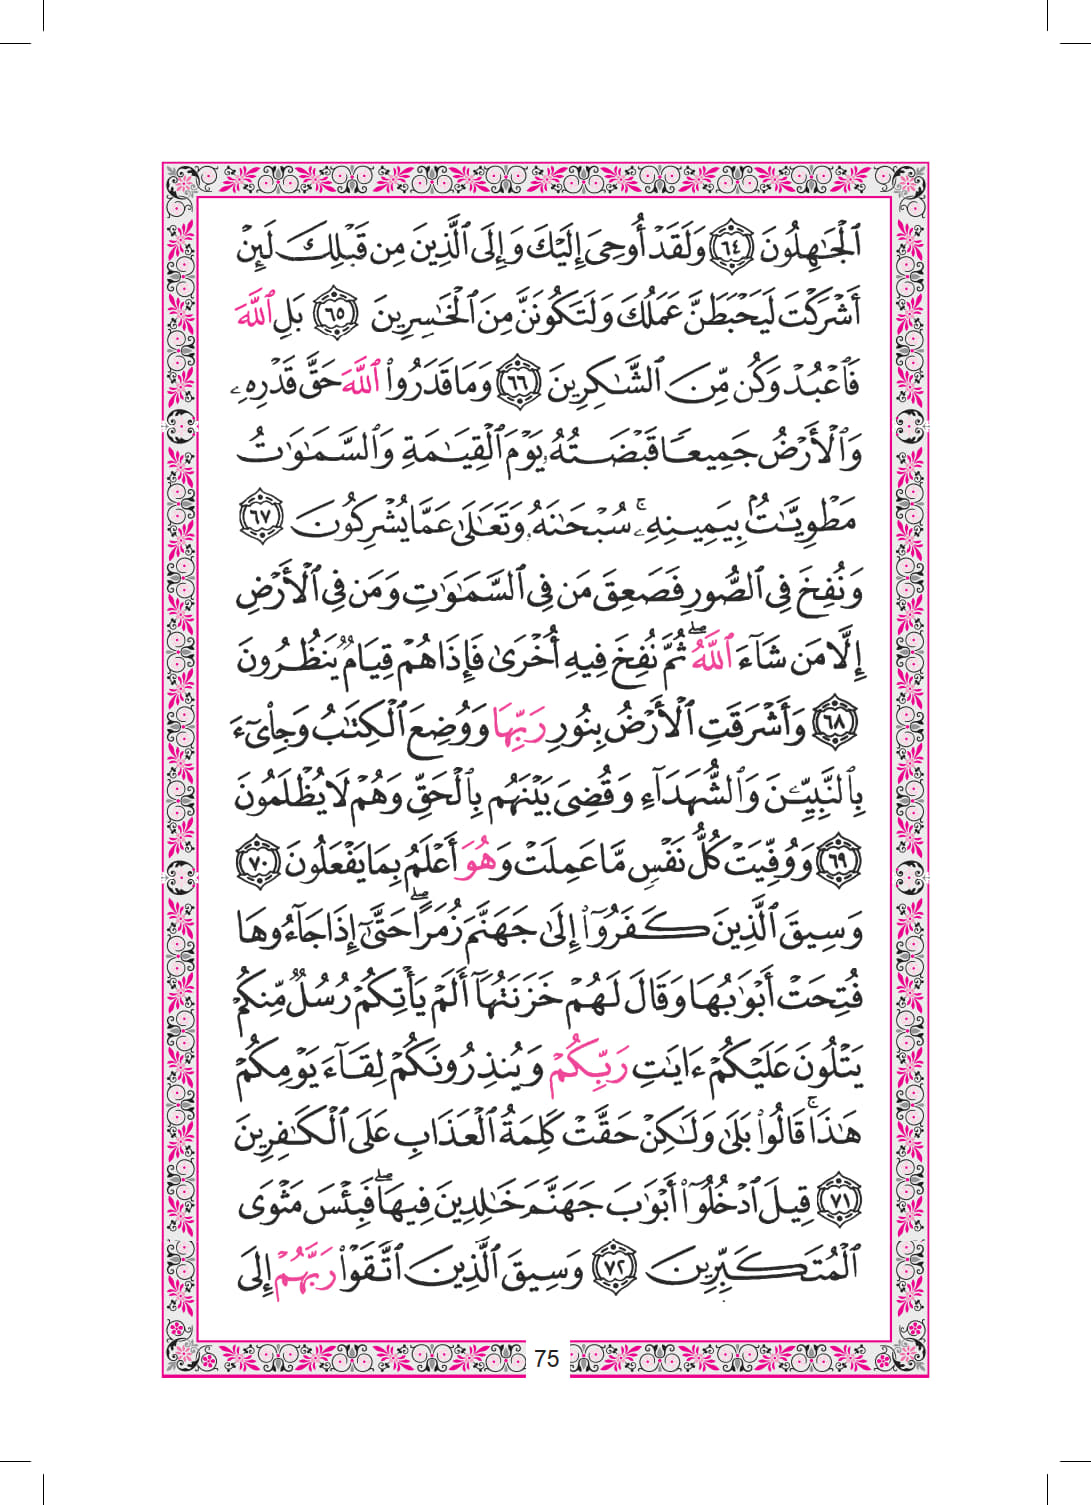 ٱلْجَٰهِلُونَ ﴿٦٤﴾ وَلَقَدْ أُوحِىَ إِلَيْكَ وَإِلَى ٱلَّذِينَ مِن قَبْلِكَ لَئِنْ
أَشْرَكْتَ لَيَحْبَطَنَّ عَمَلُكَ وَلَتَكُونَنَّ مِنَ ٱلْخَٰسِرِينَ ﴿٦٥﴾ بَلِ ٱللَّهَ
فَٱعْبُدْ وَكُن مِّنَ ٱلشَّٰكِرِينَ ﴿٦٦﴾ وَمَا قَدَرُوا۟ ٱللَّهَ حَقَّ قَدْرِهِۦ
وَٱلْأَرْضُ جَمِيعًا قَبْضَتُهُۥ يَوْمَ ٱلْقِيَٰمَةِ وَٱلسَّمَٰوَٰتُ
مَطْوِيَّٰتٌۢ بِيَمِينِهِۦ ۚ سُبْحَٰنَهُۥ وَتَعَٰلَىٰ عَمَّا يُشْرِكُونَ ﴿٦٧﴾
وَنُفِخَ فِى ٱلصُّورِ فَصَعِقَ مَن فِى ٱلسَّمَٰوَٰتِ وَمَن فِى ٱلْأَرْضِ
إِلَّا مَن شَآءَ ٱللَّهُ ۖ ثُمَّ نُفِخَ فِيهِ أُخْرَىٰ فَإِذَا هُمْ قِيَامٌ يَنظُرُونَ
﴿٦٨﴾ وَأَشْرَقَتِ ٱلْأَرْضُ بِنُورِ رَبِّهَا وَوُضِعَ ٱلْكِتَٰبُ وَجِا۟ىٓءَ
بِٱلنَّبِيِّۦنَ وَٱلشُّهَدَآءِ وَقُضِىَ بَيْنَهُم بِٱلْحَقِّ وَهُمْ لَا يُظْلَمُونَ
﴿٦٩﴾ وَوُفِّيَتْ كُلُّ نَفْسٍ مَّا عَمِلَتْ وَهُوَ أَعْلَمُ بِمَا يَفْعَلُونَ ﴿٧٠﴾
وَسِيقَ ٱلَّذِينَ كَفَرُوٓا۟ إِلَىٰ جَهَنَّمَ زُمَرًا ۖ حَتَّىٰٓ إِذَا جَآءُوهَا
فُتِحَتْ أَبْوَٰبُهَا وَقَالَ لَهُمْ خَزَنَتُهَآ أَلَمْ يَأْتِكُمْ رُسُلٌ مِّنكُمْ
يَتْلُونَ عَلَيْكُمْ ءَايَٰتِ رَبِّكُمْ وَيُنذِرُونَكُمْ لِقَآءَ يَوْمِكُمْ
هَٰذَا ۚ قَالُوا۟ بَلَىٰ وَلَٰكِنْ حَقَّتْ كَلِمَةُ ٱلْعَذَابِ عَلَى ٱلْكَٰفِرِينَ
﴿٧١﴾ قِيلَ ٱدْخُلُوٓا۟ أَبْوَٰبَ جَهَنَّمَ خَٰلِدِينَ فِيهَا ۖ فَبِئْسَ مَثْوَى
ٱلْمُتَكَبِّرِينَ ﴿٧٢﴾ وَسِيقَ ٱلَّذِينَ ٱتَّقَوْا۟ رَبَّهُمْ إِلَى
75